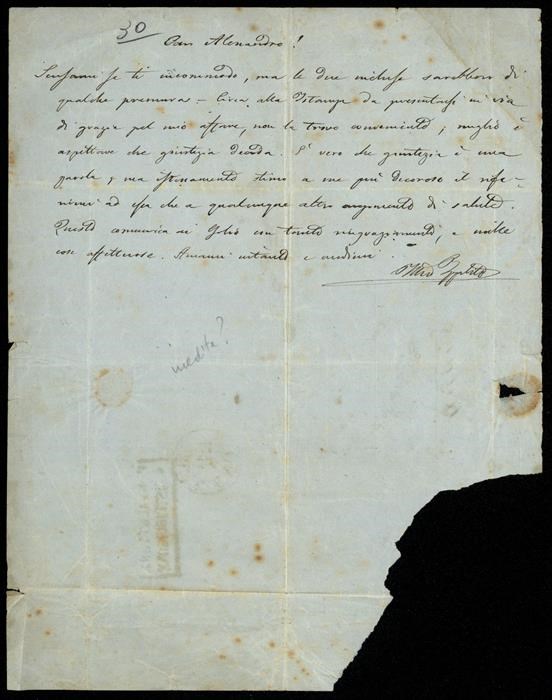 30
Caro Alessandro!
Scusami se ti incommodo, ma le due incluse sarebbero di
qualche premura – Circa alla Istanza da presentarsi in via
di grazia pel mio affare, non la trovo conveniente; meglio è
aspettare che giustizia decida. È vero che giustizia è una
parola, ma stimo a me più decoroso il
ad essa che a qualunque altro argomento di salute.
Questo comunica ai con tanto ringraziamento, e mille
cose affettuose. Amami intanto e credimi
Ippolito
inedita?